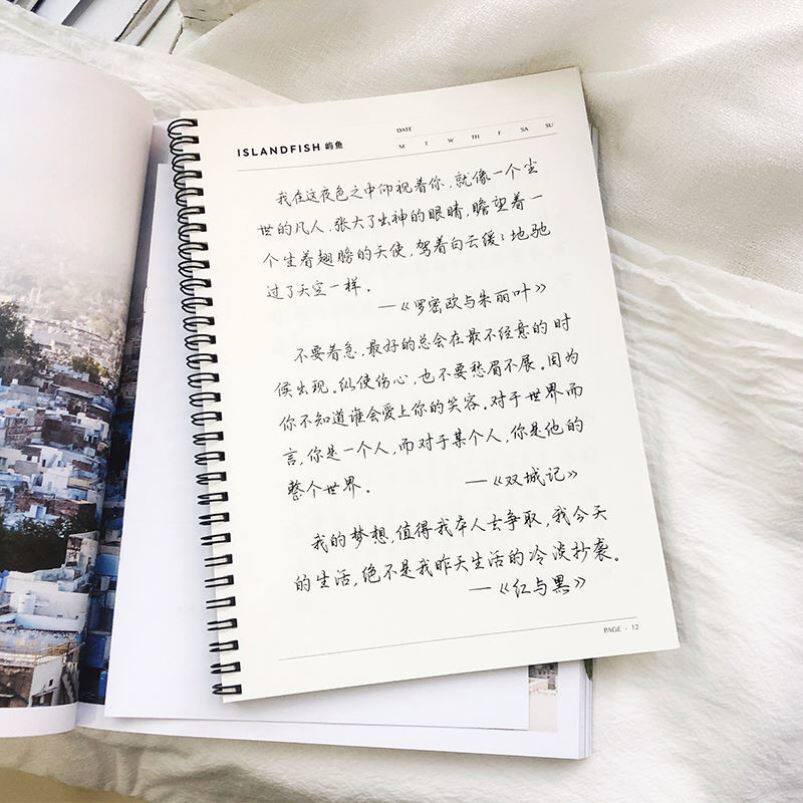 ISLANDFISH 屿鱼
DATE
M T W TH F SA SU
我在这夜色之中仰视着你,就像一个尘
世的凡人,张大了出神的眼睛,瞻望着一
个生着翅膀的天使,驾着白云缓缓地驰
过了天空一样。
—《罗密欧与朱丽叶》
不要着急,最好的总会在最不经意的时
候出现。纵使伤心,也不要愁眉不展。因为
你不知道谁会爱上你的笑容。对于世界而
言,你是一个人,而对于某个人,你是他的
整个世界。 —《双城记》
我的梦想,值得我本人去争取,我今天
的生活,绝不是我昨天生活的冷淡抄袭。
—《红与黑》
PAGE - 12